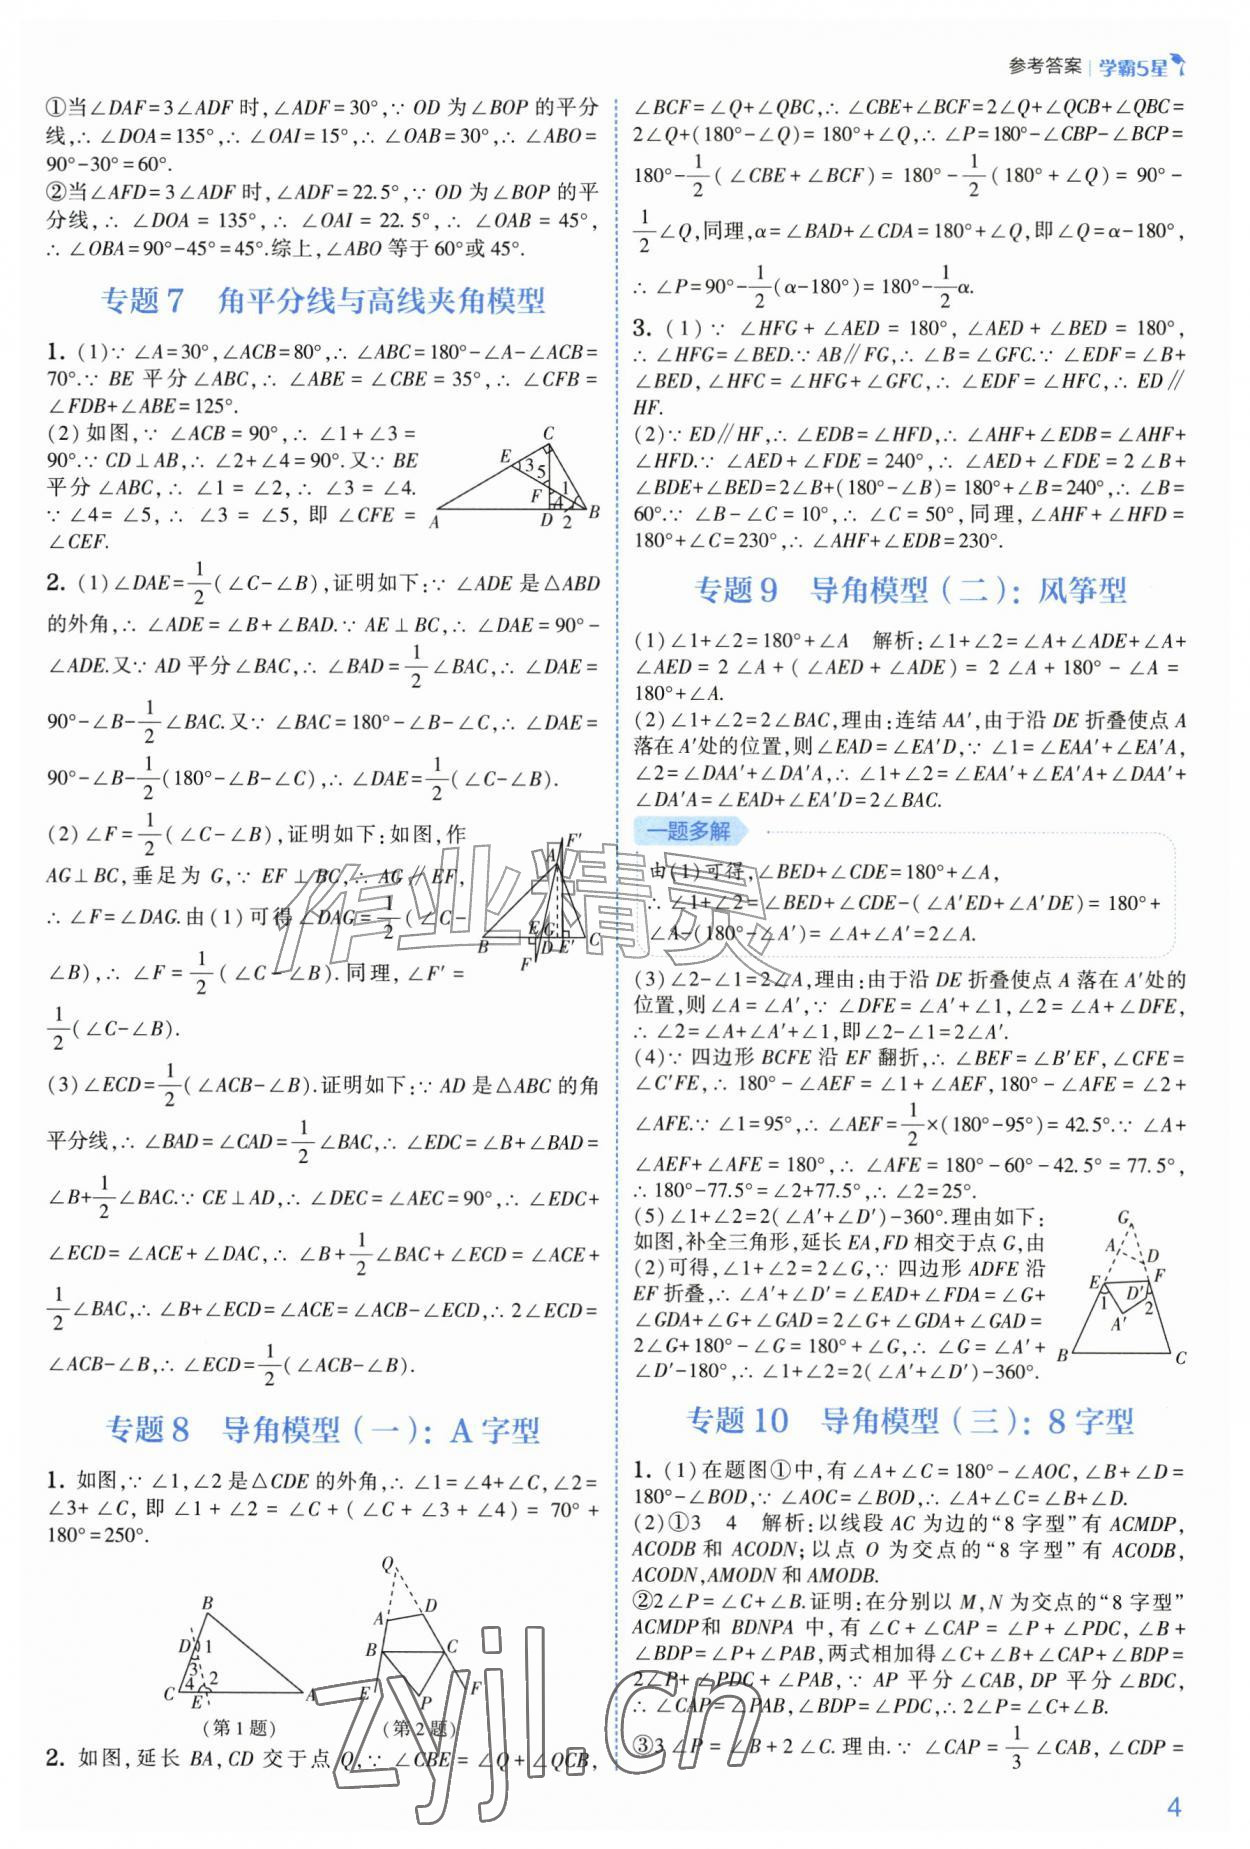 参考答案 学霸5星
①当∠DAF=3∠ADF时,∠ADF=30°,∵ OD为∠BOP的平分
线,∴ ∠DOA=135°,∴ ∠OAI=15°,∴ ∠OAB=30°,∴ ∠ABO=
90°-30°=60°.
②当∠AFD=3∠ADF时,∠ADF=22.5°,∵ OD为∠BOP的平
分线,∴ ∠DOA=135°,∴ ∠OAI=22.5°,∴ ∠OAB=45°,
∴ ∠OBA=90°-45°=45°.综上,∠ABO等于60°或45°.
专题7 角平分线与高线夹角模型
1. (1)∵ ∠A=30°,∠ACB=80°,∴ ∠ABC=180°-∠A-∠ACB=
70°.∵ BE平分∠ABC,∴ ∠ABE=∠CBE=35°,∴ ∠CFB=
∠FDB+∠ABE=125°.
(2)如图,∵ ∠ACB=90°,∴ ∠1+∠3=
90°.∵ CD⊥AB,∴ ∠2+∠4=90°.又∵ BE
平分∠ABC,∴ ∠1=∠2,∴ ∠3=∠4.
∵ ∠4=∠5,∴ ∠3=∠5,即∠CFE=
∠CEF.
C E 3 5 F 1 4 A D 2 B
2. (1)∠DAE=1/2(∠C-∠B),证明如下:∵ ∠ADE是△ABD
的外角,∴ ∠ADE=∠B+∠BAD.∵ AE⊥BC,∴ ∠DAE=90°-
∠ADE.又∵ AD平分∠BAC,∴ ∠BAD=1/2∠BAC,∴ ∠DAE=
90°-∠B-1/2∠BAC.又∵ ∠BAC=180°-∠B-∠C,∴ ∠DAE=
90°-∠B-1/2(180°-∠B-∠C),∴ ∠DAE=1/2(∠C-∠B).
(2)∠F=1/2(∠C-∠B),证明如下:如图,作
AG⊥BC,垂足为G,∵ EF⊥BC,∴ AG∥EF,
∴ ∠F=∠DAG.由(1)可得∠DAG=1/2(∠C-
∠B),∴ ∠F=1/2(∠C-∠B).同理,∠F'=
1/2(∠C-∠B).
F' A B E G C F D E'
(3)∠ECD=1/2(∠ACB-∠B).证明如下:∵ AD是△ABC的角
平分线,∴ ∠BAD=∠CAD=1/2∠BAC,∴ ∠EDC=∠B+∠BAD=
∠B+1/2∠BAC.∵ CE⊥AD,∴ ∠DEC=∠AEC=90°,∴ ∠EDC+
∠ECD=∠ACE+∠DAC,∴ ∠B+1/2∠BAC+∠ECD=∠ACE+
1/2∠BAC,∴ ∠B+∠ECD=∠ACE=∠ACB-∠ECD,∴ 2∠ECD=
∠ACB-∠B,∴ ∠ECD=1/2(∠ACB-∠B).
专题8 导角模型(一):A字型
1. 如图,∵ ∠1,∠2是△CDE的外角,∴ ∠1=∠4+∠C,∠2=
∠3+∠C,即∠1+∠2=∠C+(∠C+∠3+∠4)=70°+
180°=250°.
B D 1 3 2 C 4 E A
Q A D B C E P F
(第1题) (第2题)
2. 如图,延长BA,CD交于点Q,∵ ∠CBE=∠Q+∠QCB,
∠BCF=∠Q+∠QBC,∴ ∠CBE+∠BCF=2∠Q+∠QCB+∠QBC=
2∠Q+(180°-∠Q)=180°+∠Q,∴ ∠P=180°-∠CBP-∠BCP=
180°-1/2(∠CBE+∠BCF)=180°-1/2(180°+∠Q)=90°-
1/2∠Q,同理,α=∠BAD+∠CDA=180°+∠Q,即∠Q=α-180°,
∴ ∠P=90°-1/2(α-180°)=180°-1/2α.
3. (1)∵ ∠HFG+∠AED=180°,∠AED+∠BED=180°,
∴ ∠HFG=∠BED.∵ AB∥FG,∴ ∠B=∠GFC.∵ ∠EDF=∠B+
∠BED,∠HFC=∠HFG+∠GFC,∴ ∠EDF=∠HFC,∴ ED∥
HF.
(2)∵ ED∥HF,∴ ∠EDB=∠HFD,∴ ∠AHF+∠EDB=∠AHF+
∠HFD.∵ ∠AED+∠FDE=240°,∴ ∠AED+∠FDE=2∠B+
∠BDE+∠BED=2∠B+(180°-∠B)=180°+∠B=240°,∴ ∠B=
60°.∵ ∠B-∠C=10°,∴ ∠C=50°,同理,∠AHF+∠HFD=
180°+∠C=230°,∴ ∠AHF+∠EDB=230°.
专题9 导角模型(二):风筝型
(1)∠1+∠2=180°+∠A 解析:∠1+∠2=∠A+∠ADE+∠A+
∠AED=2∠A+(∠AED+∠ADE)=2∠A+180°-∠A=
180°+∠A.
(2)∠1+∠2=2∠BAC,理由:连结AA',由于沿DE折叠使点A
落在A'处的位置,则∠EAD=∠EA'D,∵ ∠1=∠EAA'+∠EA'A,
∠2=∠DAA'+∠DA'A,∴ ∠1+∠2=∠EAA'+∠EA'A+∠DAA'+
∠DA'A=∠EAD+∠EA'D=2∠BAC.
一题多解
由(1)可得,∠BED+∠CDE=180°+∠A,
∴ ∠1+∠2=∠BED+∠CDE-(∠A'ED+∠A'DE)=180°+
∠A-(180°-∠A')=∠A+∠A'=2∠A.
(3)∠2-∠1=2∠A,理由:由于沿DE折叠使点A落在A'处的
位置,则∠A=∠A',∵ ∠DFE=∠A'+∠1,∠2=∠A+∠DFE,
∴ ∠2=∠A+∠A'+∠1,即∠2-∠1=2∠A'.
(4)∵ 四边形BCFE沿EF翻折,∴ ∠BEF=∠B'EF,∠CFE=
∠C'FE,∴ 180°-∠AEF=∠1+∠AEF,180°-∠AFE=∠2+
∠AFE.∵ ∠1=95°,∴ ∠AEF=1/2×(180°-95°)=42.5°.∵ ∠A+
∠AEF+∠AFE=180°,∴ ∠AFE=180°-60°-42.5°=77.5°,
∴ 180°-77.5°=∠2+77.5°,∴ ∠2=25°.
(5)∠1+∠2=2(∠A'+∠D')-360°.理由如下:
如图,补全三角形,延长EA,FD相交于点G,由
(2)可得,∠1+∠2=2∠G,∵ 四边形ADFE沿
EF折叠,∴ ∠A'+∠D'=∠EAD+∠FDA=∠G+
∠GDA+∠G+∠GAD=2∠G+∠GDA+∠GAD=
2∠G+180°-∠G=180°+∠G,∴ ∠G=∠A'+
∠D'-180°,∴ ∠1+∠2=2(∠A'+∠D')-360°.
G A D E F 1 D' 2 A' B C
专题10 导角模型(三):8字型
1. (1)在题图①中,有∠A+∠C=180°-∠AOC,∠B+∠D=
180°-∠BOD,∵ ∠AOC=∠BOD,∴ ∠A+∠C=∠B+∠D.
(2)①3 4 解析:以线段AC为边的“8字型”有ACMDP,
ACODB和ACODN;以点O为交点的“8字型”有ACODB,
ACODN,AMODN和AMODB.
②2∠P=∠C+∠B.证明:在分别以M,N为交点的“8字型”
ACMDP和BDNPA中,有∠C+∠CAP=∠P+∠PDC,∠B+
∠BDP=∠P+∠PAB,两式相加得∠C+∠B+∠CAP+∠BDP=
2∠P+∠PDC+∠PAB,∵ AP平分∠CAB,DP平分∠BDC,
∴ ∠CAP=∠PAB,∠BDP=∠PDC,∴ 2∠P=∠C+∠B.
③3∠P=∠B+2∠C.理由.∵ ∠CAP=1/3∠CAB,∠CDP=
作业精灵
zyjl.cn
4